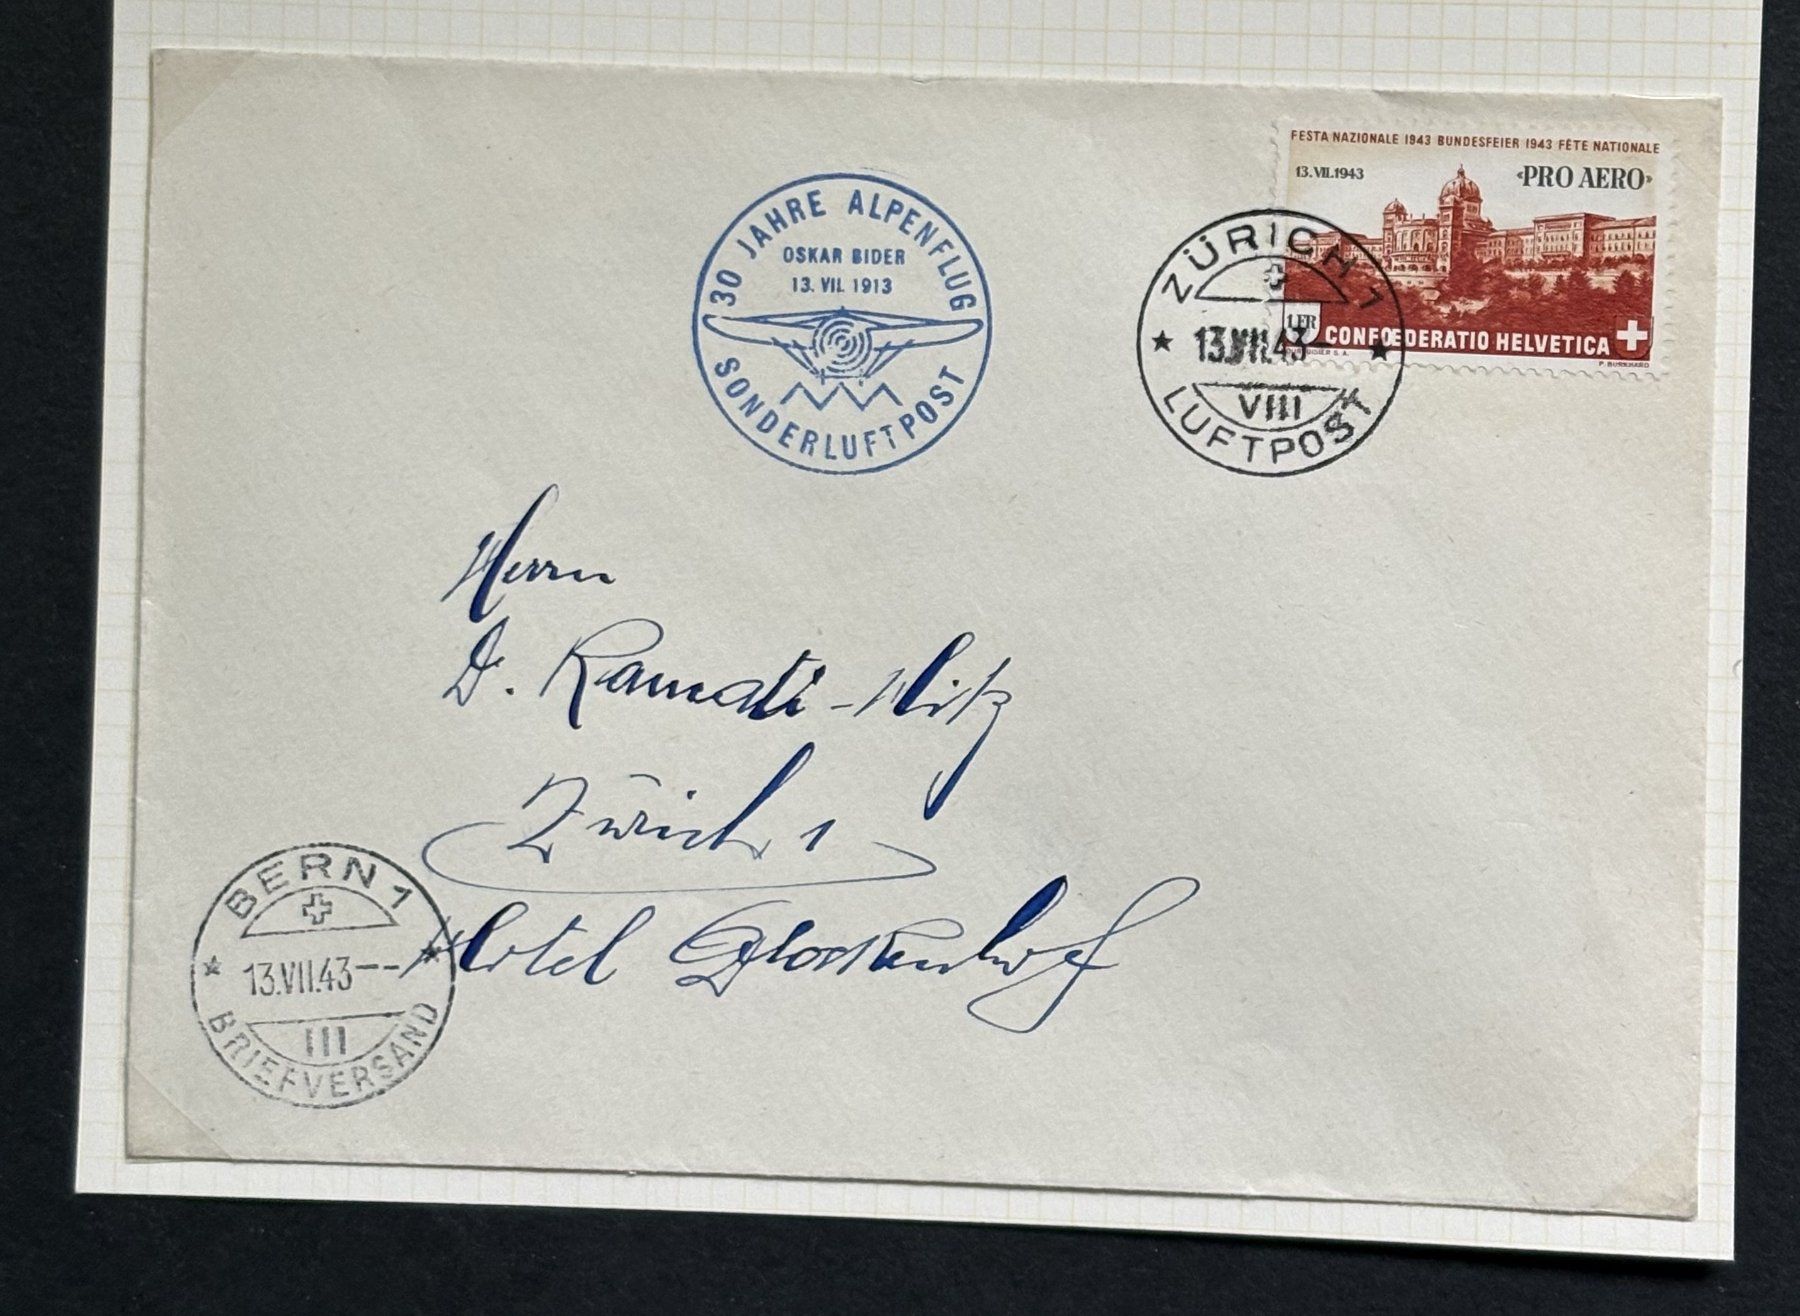 FESTA NAZIONALE 1943 BUNDESFEIER 1943 FÊTE NATIONALE
13.VII.1943 «PRO AERO»
1 FR CONFŒDERATIO HELVETICA
COURVOISIER S.A. F. BURKHARD
30 JAHRE ALPENFLUG
OSKAR BIDER
13. VII. 1913
SONDERLUFTPOST
ZÜRICH 1
13.VII.43
VIII
LUFTPOST
Herrn
D. Ramati-Witz
Zürich 1
Hotel Glockenhof
BERN 1
13.VII.43--
III
BRIEFVERSAND